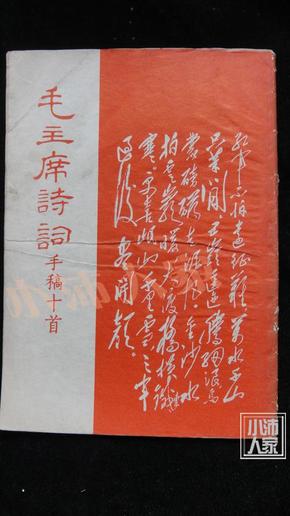 毛主席詩詞
手稿十首
紅軍不怕遠征難萬水千山
只等閒五嶺逶迤騰細浪烏
蒙磅礴走泥丸金沙水
拍雲崖暖大渡橋橫鐵索
寒更喜岷山千里雪三軍
過後盡開顏。
小沛
人家